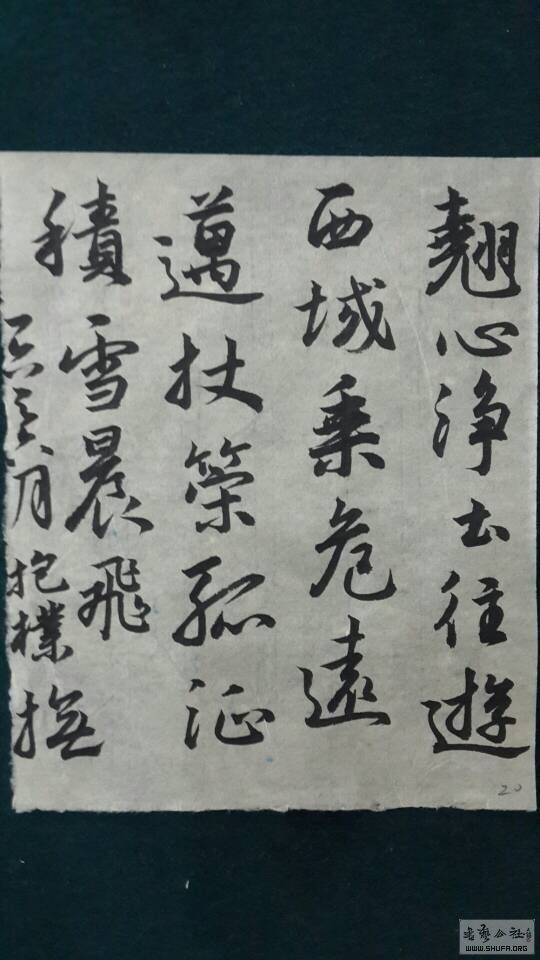 翹心淨土往遊
西域乗危遠
邁杖策孤征
積雪晨飛
月抱樸撫
20
书艺公社
WWW.SHUFA.ORG